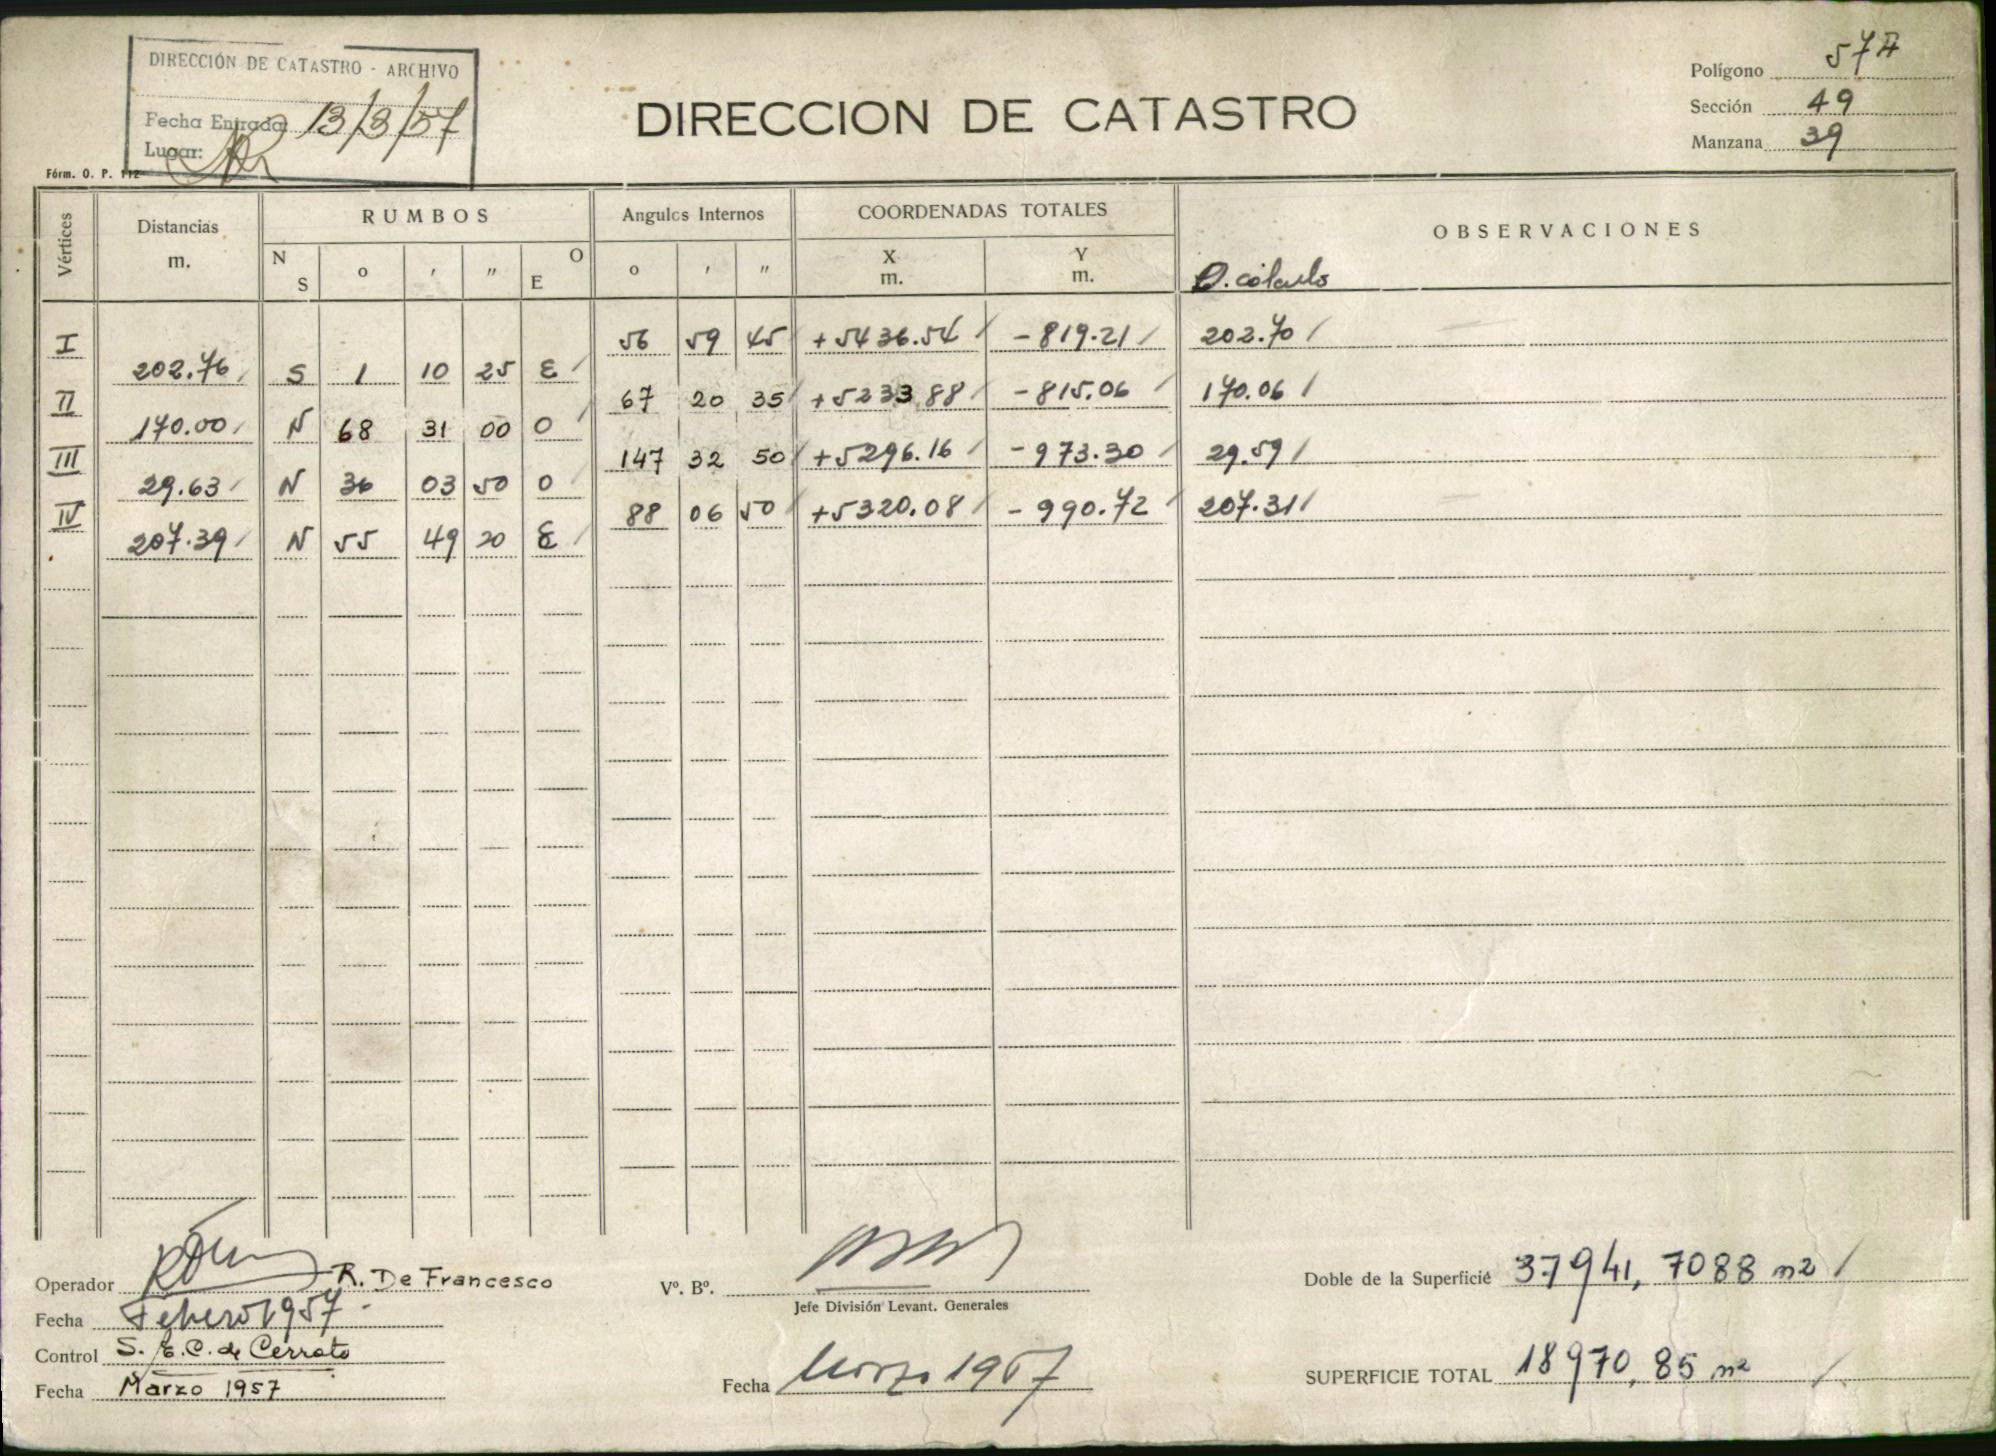 DIRECCIÓN DE CATASTRO - ARCHIVO
Fecha Entrada: 13/3/57
Lugar:
DIRECCION DE CATASTRO
Polígono 57A
Sección 49
Manzana 39
Fórm. O. P. 112
Vértices
Distancias m.
RUMBOS
N S o ' " O E
Angulos Internos
o ' "
COORDENADAS TOTALES
X m. Y m.
OBSERVACIONES
I 56 59 45 +5436.54 -819.21 202.70
202.76 S 1 10 25 E
II 67 20 35 +5233.88 -815.06 170.06
170.00 N 68 31 00 O
III 147 32 50 +5296.16 -973.30 29.59
29.63 N 36 03 50 O
IV 88 06 50 +5320.08 -990.72 207.31
207.39 N 55 49 20 E
Operador R. De Francesco
Fecha Febrero 1957
Control S. E. C. de Cerrato
Fecha Marzo 1957
Vº. Bº.
Jefe División Levant. Generales
Fecha Marzo 1957
Doble de la Superficie 37941,7088 m2
SUPERFICIE TOTAL 18970,85 m2